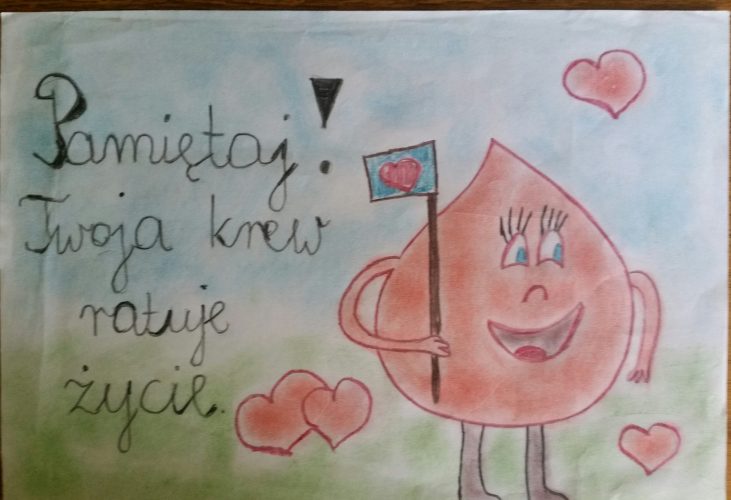 Pamiętaj!
Twoja krew
ratuje
życie.